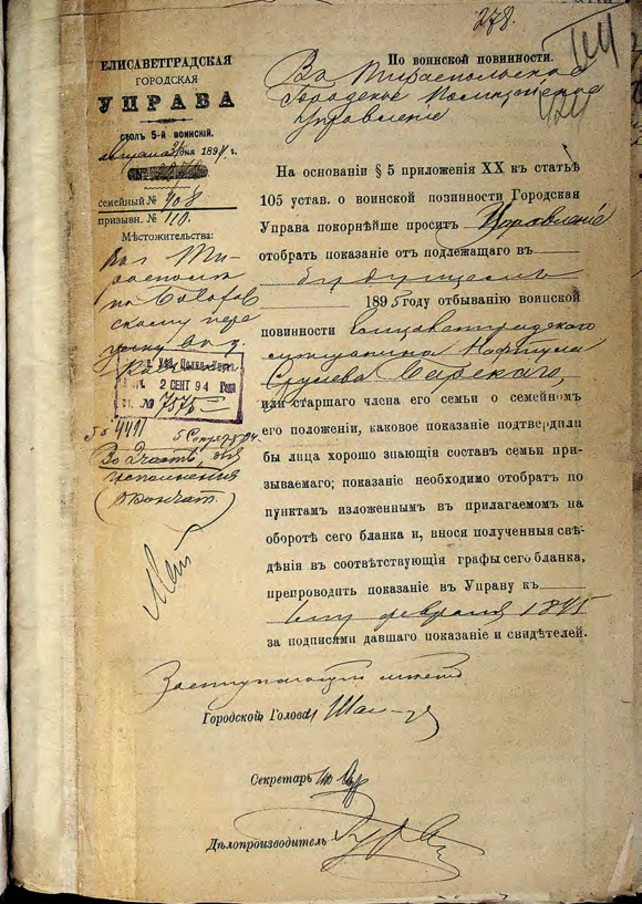 278.
ЕЛИСАВЕТГРАДСКАЯ
ГОРОДСКАЯ
УПРАВА
СТОЛЪ 5-й ВОИНСКІЙ.
августа 31 дня 1894 г.
№
семейный № 408
призывн. № 110.
Мѣстожительства:
Въ г. Ти-
располѣ
по
скому пере
улку въ д.
2 СЕНТ 94 Года
№ 7575
4491
5 Сентября 94.
Во 2 часть, для
исполненія
По воинской повинности.
Въ Тираспольское
Городское Полицейское
Управленіе
На основаніи § 5 приложенія XX къ статьѣ
105 устав. о воинской повинности Городская
Управа покорнѣйше проситъ Управленіе
отобрать показаніе отъ подлежащаго въ
будущемъ
1895 году отбыванію воинской
повинности Елисаветградскаго
мѣщанина Нафтула
Срулева
или старшаго члена его семьи о семейномъ
его положеніи, каковое показаніе подтвердили
бы лица хорошо знающія составъ семьи при-
зываемаго; показаніе необходимо отобрать по
пунктамъ изложеннымъ въ прилагаемомъ на
оборотѣ сего бланка и, внося полученныя свѣ-
дѣнія въ соотвѣтствующія графы сего бланка,
препроводить показаніе въ Управу къ
1му февраля 1895
за подписями давшаго показаніе и свидѣтелей.
Заступающій мѣсто
Городской Головы
Секретарь
Дѣлопроизводитель